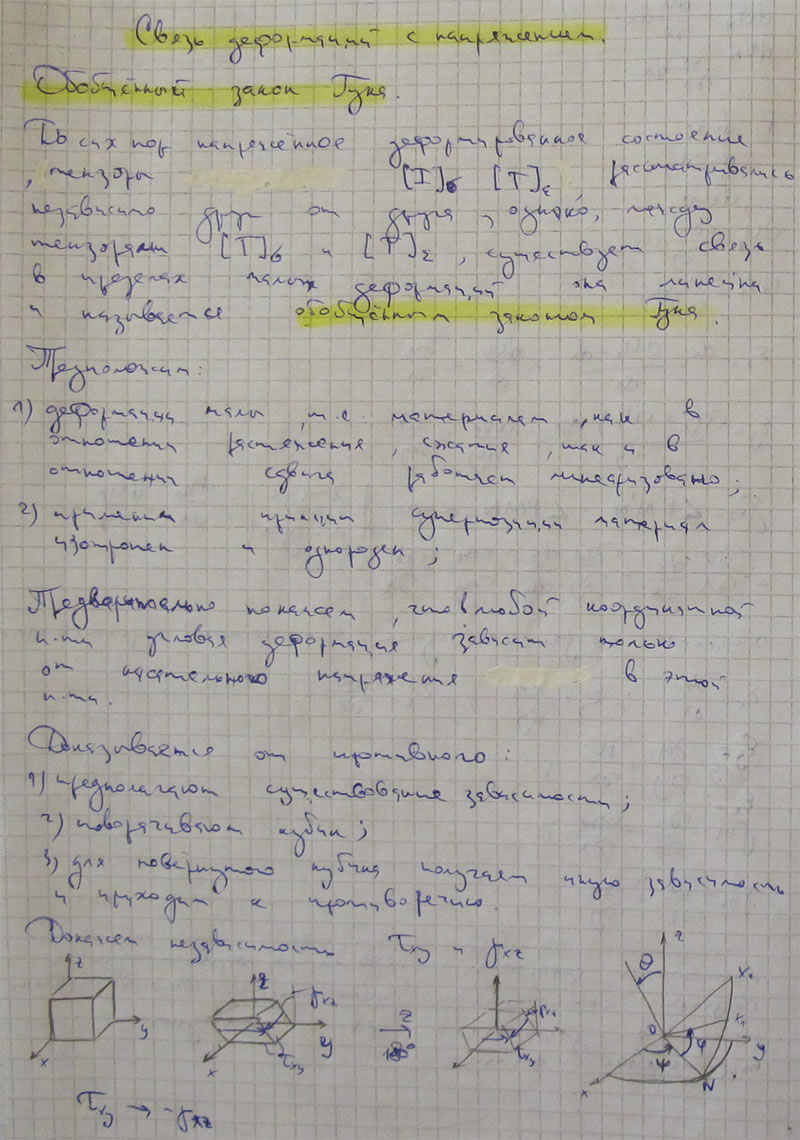 Связь деформаций с напряжением.
Обобщённый закон Гука.
До сих пор напряжённое деформированное состояние
, тензоры [T]σ [T]ε , рассматривались
независимо друг от друга , однако, между
тензорами [T]σ и [T]ε , существует связь
в пределах малых деформаций она линейна
и называется обобщённым законом Гука.
Предположим:
1) деформации малы , т.е. материал , как в
отношении растяжения , сжатия , так и в
отношении сдвига работает линеаризовано;
2) применим принцип суперпозиции материал
изотропен и однороден ;
Предварительно покажем , что в любой координатной
п-ти угловая деформация зависит только
от касательного напряжения в этой
п-ти.
Доказывается от противного :
1) предполагают существование зависимости ;
2) поворачивают кубик ;
3) для повёрнутого кубика получаем иную зависимость
и приходим к противоречию.
Докажем независимость τxy и γxz
z
y
x
z
γxz
y
τxy
x
z
180°
γxz
τxy
z
θ
x₁
0
φ
y
ψ
x
N
τxy → -γxz